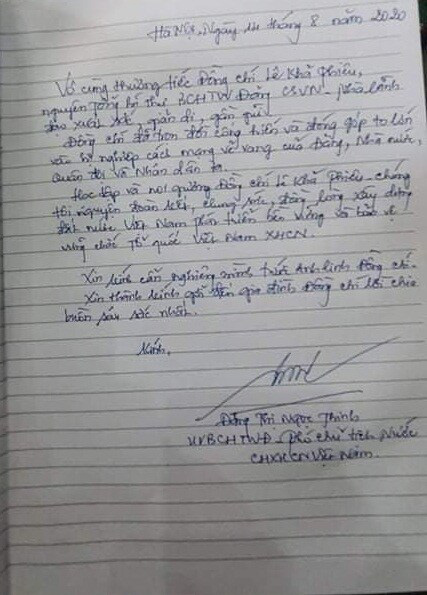 Hà Nội, Ngày 14 tháng 8 năm 2020
Vô cùng thương tiếc Đồng chí Lê Khả Phiêu,
nguyên Tổng bí thư BCHTW Đảng CSVN - nhà lãnh
đạo xuất sắc, giản dị, gần gũi.
Đồng chí đã trọn đời cống hiến và đóng góp to lớn
vào sự nghiệp cách mạng vẻ vang của Đảng, Nhà nước,
Quân đội và Nhân dân ta.
Học tập và noi gương Đồng chí Lê Khả Phiêu - chúng
tôi nguyện đoàn kết, chung sức, đồng lòng xây dựng
đất nước Việt Nam phát triển bền vững và bảo vệ
vững chắc Tổ quốc Việt Nam XHCN.
Xin kính cẩn nghiêng mình trước Anh linh Đồng chí.
Xin thành kính gửi đến gia đình Đồng chí lời chia
buồn sâu sắc nhất.
Kính,
Đặng Thị Ngọc Thịnh
UVBCHTWĐ - Phó chủ tịch Nước
CHXHCN Việt Nam.